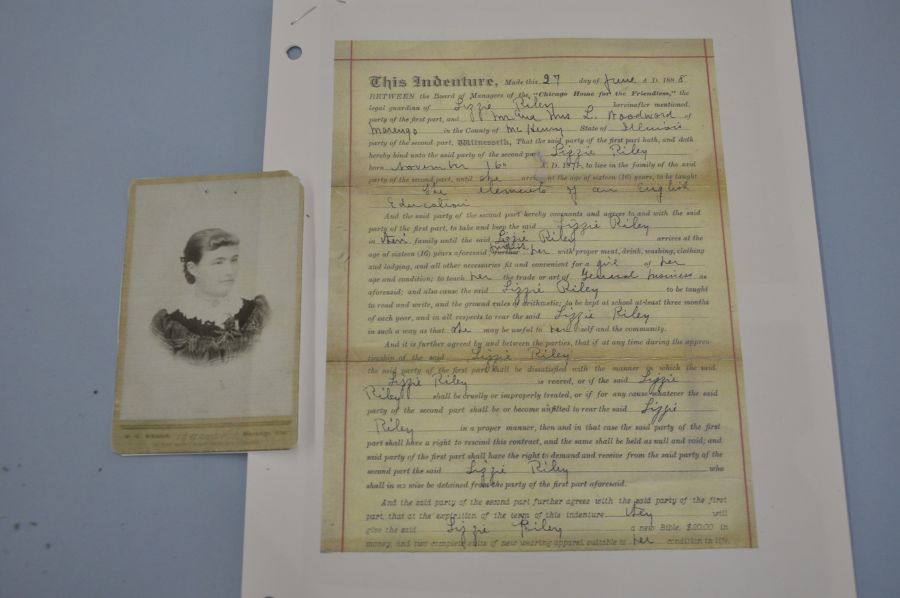 This Indenture, Made this 27 day of June A. D. 188
BETWEEN the Board of Managers of the "Chicago Home for the Friendless," the
legal guardian of Lizzie Riley hereinafter mentioned,
party of the first part, and Mr and Mrs L. Woodward of
Marengo in the County of McHenry State of Illinois
party of the second part, Witnesseth, That the said party of the first part hath, and doth
hereby bind unto the said party of the second part Lizzie Riley
born November 16th A. D. 187 , to live in the family of the said
party of the second part, until she arrives at the age of sixteen (16) years, to be taught
the elements of an English
Education
And the said party of the second part hereby covenants and agrees to and with the said
party of the first part, to take and keep the said Lizzie Riley
in their family until the said Lizzie Riley arrives at the
age of sixteen (16) years aforesaid, her with proper meat, drink, washing, clothing
and lodging, and all other necessaries fit and convenient for a girl of her
age and condition; to teach her the trade or art of General as
aforesaid; and also cause the said Lizzie Riley to be taught
to read and write, and the ground rules of arithmetic; to be kept at school at least three months
of each year, and in all respects to rear the said Lizzie Riley
in such a way as that she may be useful to her self and the community.
And it is further agreed by and between the parties, that if at any time during the appren-
ticeship of the said Lizzie Riley
the said party of the first part shall be dissatisfied with the manner in which the said
Lizzie Riley is reared, or if the said Lizzie
Riley shall be cruelly or improperly treated, or if for any cause whatever the said
party of the second part shall be or become unfitted to rear the said Lizzie
Riley in a proper manner, then and in that case the said party of the first
part shall have a right to rescind this contract, and the same shall be held as null and void; and
said party of the first part shall have the right to demand and receive from the said party of the
second part the said Lizzie Riley who
shall in no wise be detained from the party of the first part aforesaid.
And the said party of the second part further agrees with the said party of the first
part, that at the expiration of the term of this indenture they will
give the said Lizzie Riley a new Bible, $20.00 in
money, and two complete suits of new wearing apparel suitable to her condition in life.
Marengo, Ills.